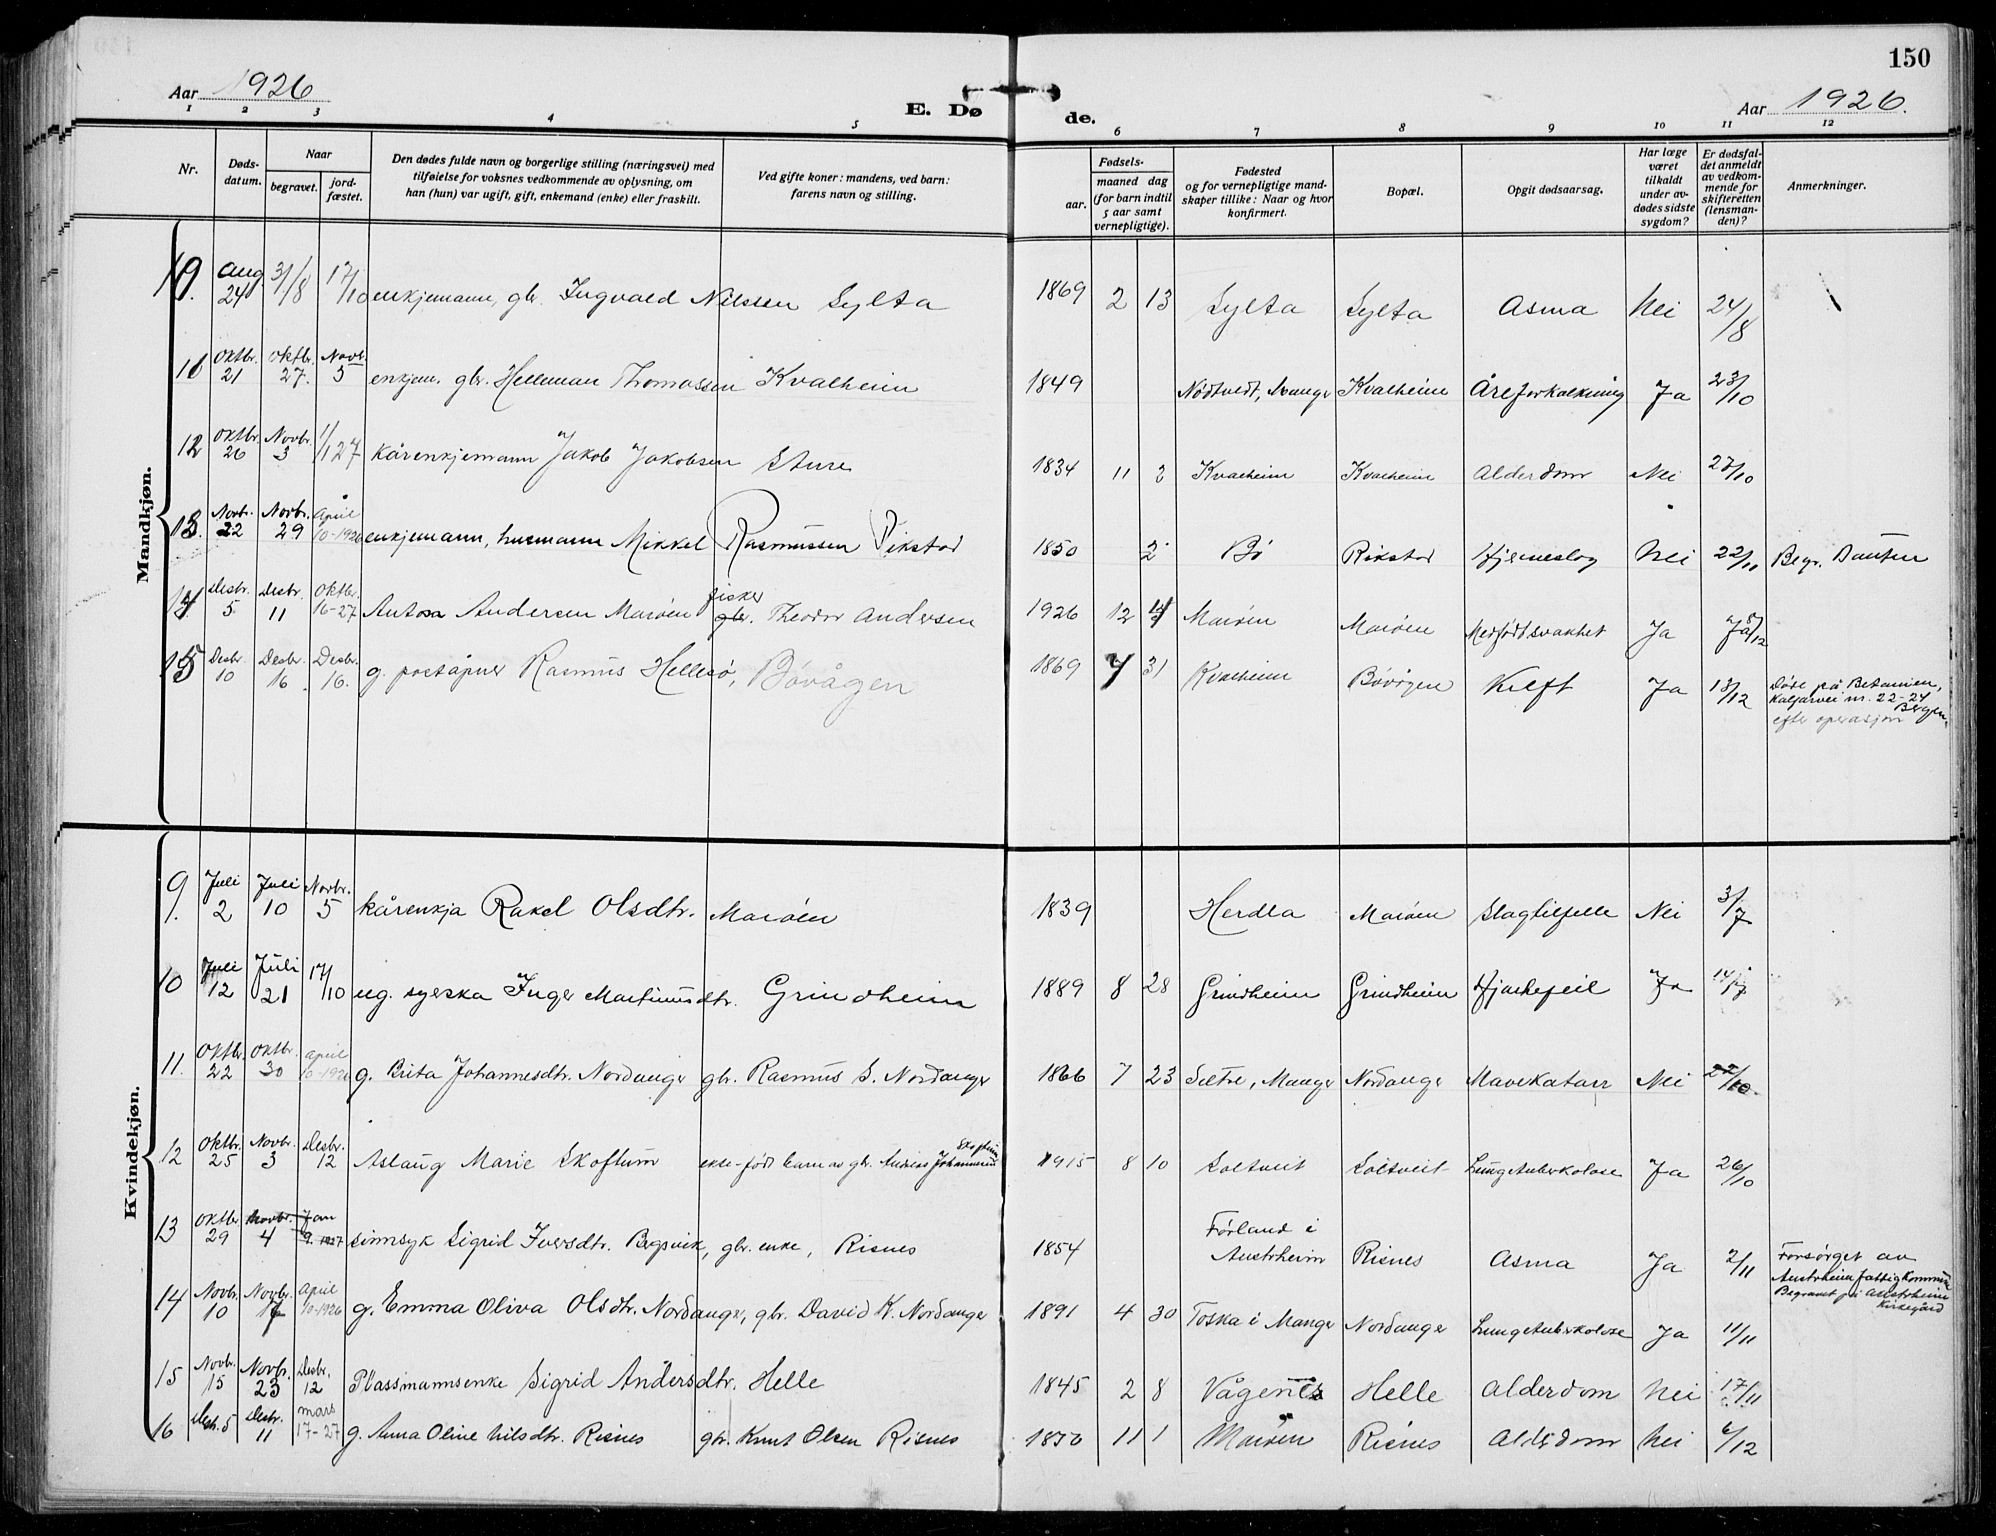 150
Aar 1926
E. Døde.
Aar 1926.
1 2 3 4 5 6 7 8 9 10 11 12
Nr.
Døds-datum.
Naar
begravet.
jord-fæstet.
Den dødes fulde navn og borgerlige stilling (næringsvei) med tilføielse for voksnes vedkommende av oplysning, om han (hun) var ugift, gift, enkemand (enke) eller fraskilt.
Ved gifte koner: mandens, ved barn: farens navn og stilling.
Fødsels-
aar.
maaned dag
(for barn indtil 5 aar samt vernepligtige).
Fødested og for vernepligtige mandskaper tillike: Naar og hvor konfirmert.
Bopæl.
Opgit dødsaarsag.
Har læge været tilkaldt under avdødes sidste sygdom?
Er dødsfaldet anmeldt av vedkommende for skifteretten (lensmanden)?
Anmerkninger.
Mandkjøn.
Aug 24 31/8 17/10 enkjemann, gbr. Ingvald Nilssen Sylta 1869 2 13 Sylta Sylta Asma Nei 24/8
Oktbr. 21 Oktbr. 27. Novbr. 5 enkjem. gbr. Helleman Thomassen Kvalheim 1849 Nødtvedt, Manger Kvalheim Åreforkalkning Ja 23/10
12 Oktbr. 26 Novbr. 3 1/1 27 kårenkjemann Jakob Jakobsen Sture 1834 11 2 Kvalheim Kvalheim Alderdom Nei 27/10
13. Novbr. 22 Novbr. 29 April 10-1926 enkjemann, husmann Mikkel Rasmussen Rikstad 1850 2 Bø Rikstad Hjerneslag Nei 22/11 Begr.
14 Desbr. 5 Desbr. 11 Oktbr. 16-27 Andersen Maroen fisker gbr. Theodor Andersen 1926 12 4 Maroen Maroen Medfødt svakhet Ja Ja 8/12
15 Desbr. 10 Desbr. 16 Desbr. 16. g. poståpner Rasmus Hellesø, Bøvågen 1869 7 31 Kvalheim Bøvågen Ja 13/12 Døde på Betanien, Kalfarvei nr. 22-24 Bergen, efter operasjon
Kvindekjøn.
9. Juli 2 Juli 10 Novbr. 5 kårenkja Rakel Olsdtr. Maroen 1839 Herdla Maroen Slagtilfelle Nei 3/7
10 Juli 12 Juli 21 17/10 ug. syerska Inger Martinusdtr. Grindheim 1889 8 28 Grindheim Grindheim Hjertefeil Ja 14/7
11. Oktbr. 22 Oktbr. 30 April 10-1926 g. Brita Johannesdtr. Nordanger gbr. Rasmus S. Nordanger 1866 7 23 Sætre, Manger Nordanger Mavekatarr Nei 22/10.
12 Oktbr. 25 Novbr. 3 Desbr. 12 Aslaug Marie Skoftum ekte-født barn av gbr. Andreas Johannesen Skoftum 1915 8 10 Soltveit Soltveit Lungetuberkolose Ja 26/10
13 Oktbr. 29 Novbr. 4 Jan 9. 1927 sinnsyk Sigrid Iversdtr. Bogsvik, gbr. enke, Risnes 1854 Førland i Austrheim Risnes Asma Ja 2/11 Forsørget av Austrheim fattigkommune Begravet på Austrheim Kirkegård
14 Novbr. 10 Novbr. 17 April 10-1926 g. Emma Oliva Olsdtr. Nordanger, gbr. David K. Nordanger 1891 4 30 Toska i Manger Nordanger Lungetuberkolose Ja 11/11
15 Novbr. 15 Novbr. 23 Desbr. 12 Plassmannsenke Sigrid Andersdtr. Helle 1845 2 8 Vågenes Helle Alderdom Nei 17/11
16 Desbr. 5 Desbr. 11 mars 17-27 g. Anna Oline Nilsdtr. Risnes gbr. Knut Olsen Risnes 1850 11 1 Maroen Risnes Alderdom Nei 6/12